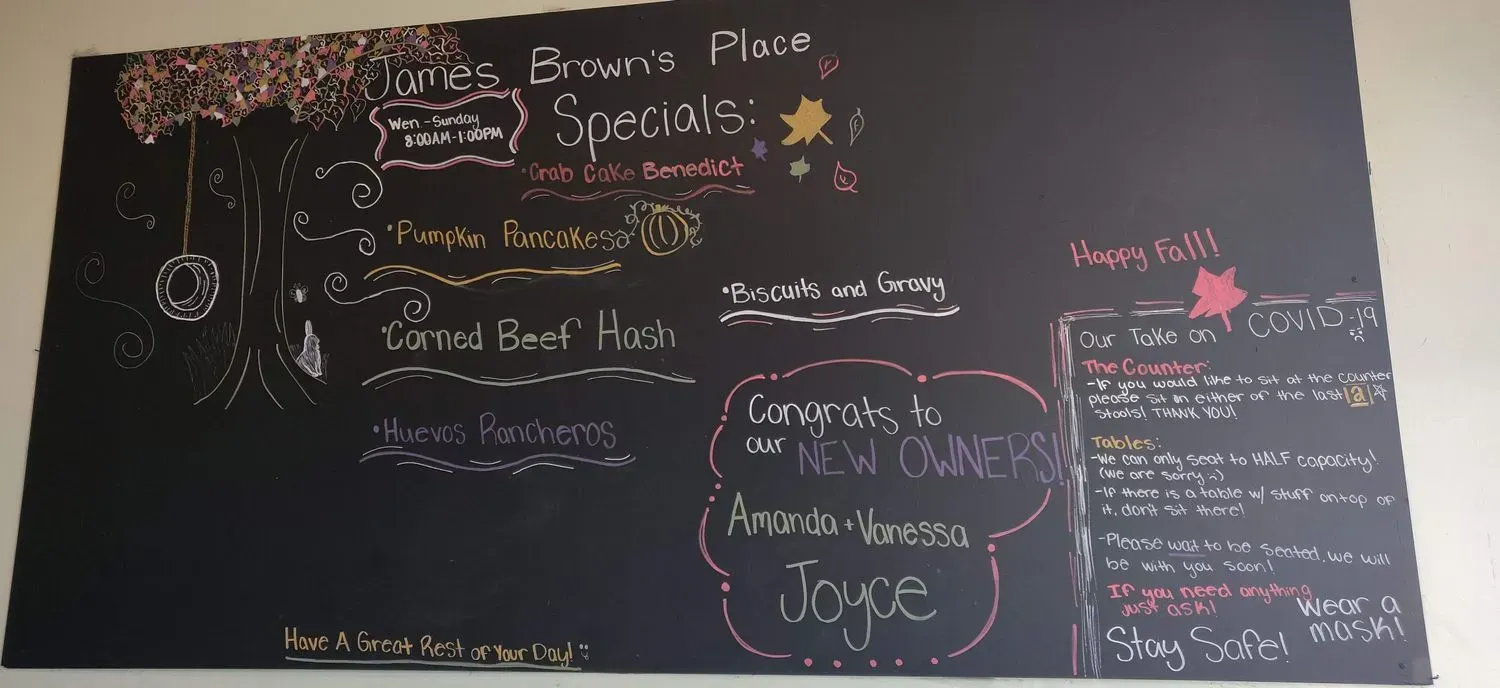 James Brown's Place
Specials:
Wen.-Sunday
8:00AM-1:00PM
·Crab Cake Benedict
·Pumpkin Pancakes
·Corned Beef Hash
·Huevos Rancheros
·Biscuits and Gravy
Congrats to
our NEW OWNERS!
Amanda + Vanessa
Joyce
Have A Great Rest of Your Day!
Happy Fall!
Our Take on COVID-19
The Counter:
-If you would like to sit at the counter
please sit in either of the last 2
stools! THANK YOU!
Tables:
-We can only seat to HALF capacity!
(we are sorry :))
-If there is a table w/ stuff ontop of
it, don't sit there!
-Please wait to be seated, we will
be with you soon!
If you need anything
just ask!
Wear a
mask!
Stay Safe!